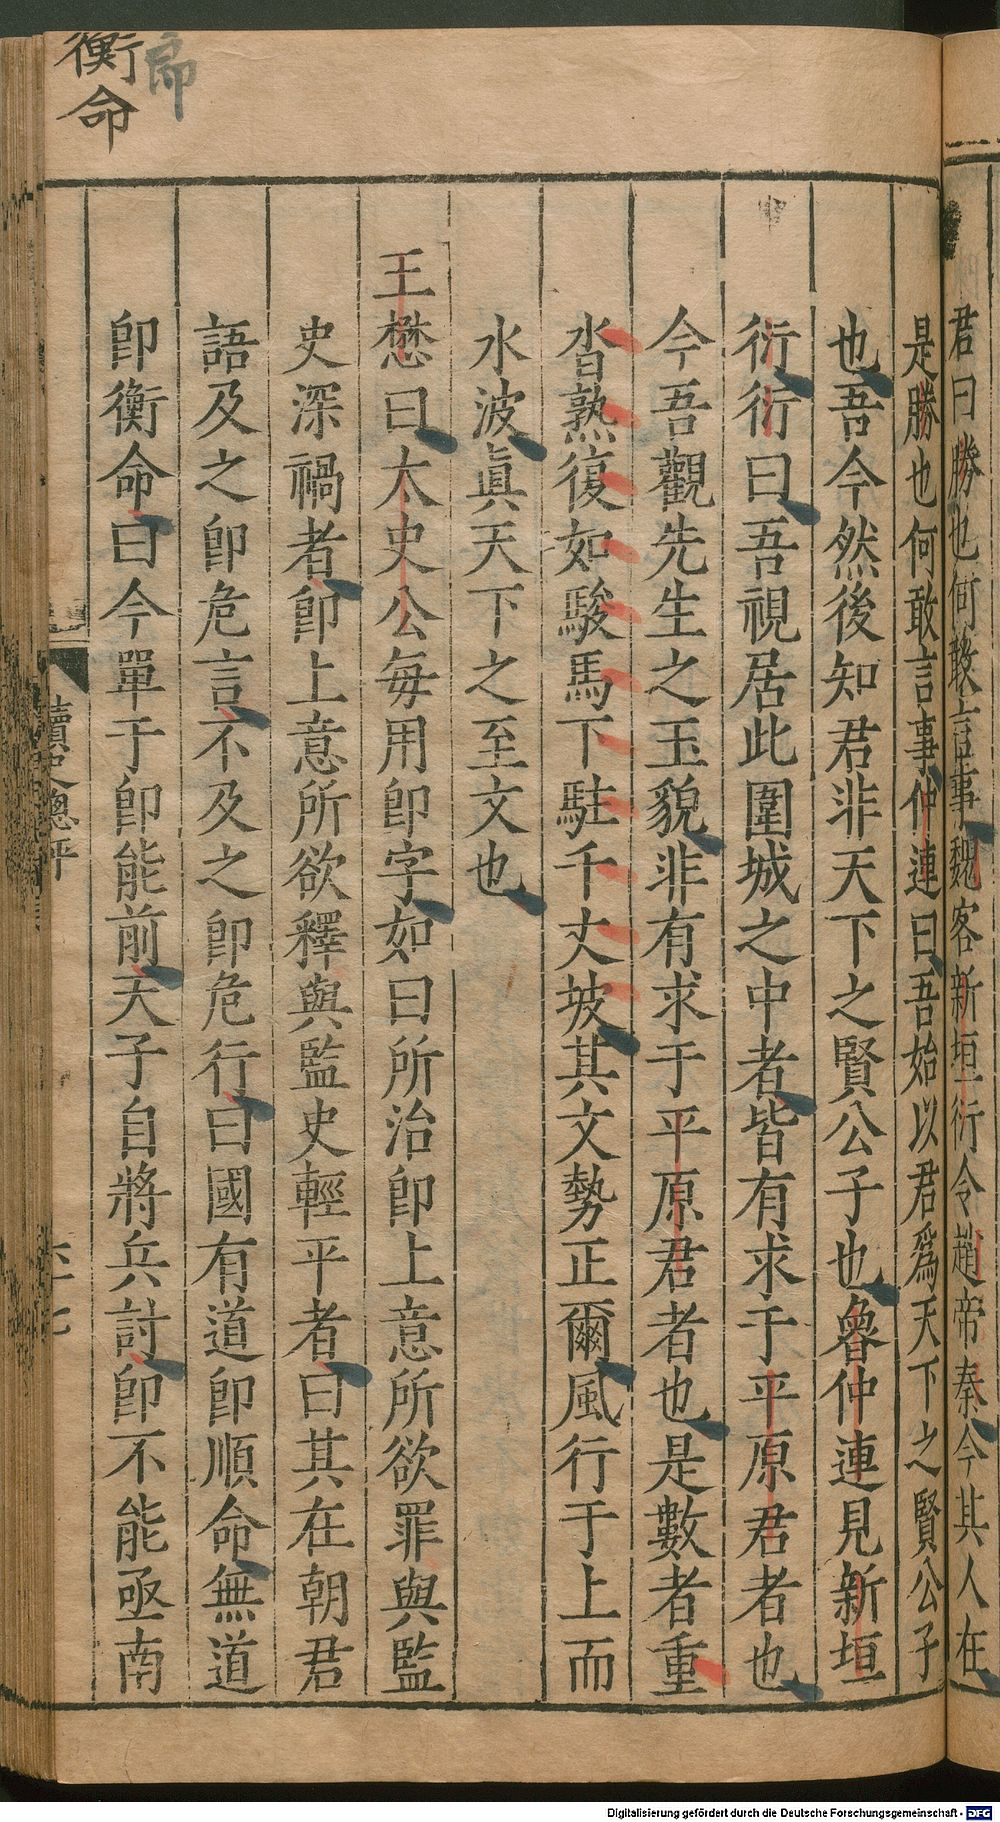 君曰勝也何敢言事魏客新垣衍令趙帝秦今其人在
是勝也何敢言事仲連曰吾始以君爲天下之賢公子
也吾今然後知君非天下之賢公子也魯仲連見新垣
衍衍曰吾視居此圍城之中者皆有求于平原君者也
今吾觀先生之玉貌非有求于平原君者也是數者重
沓熟復如駿馬下駐千丈坡其文勢正爾風行于上而
水波眞天下之至文也
王懋曰太史公每用卽字如曰所治卽上意所欲罪與監
史深禍者卽上意所欲釋與監史輕平者曰其在朝君
語及之卽危言不及之卽危行曰國有道卽順命無道
卽衡命曰今單于卽能前天子自將兵討卽不能亟南
讀史總評
六十七
卽
衡命
Digitalisierung gefördert durch die Deutsche Forschungsgemeinschaft - DFG